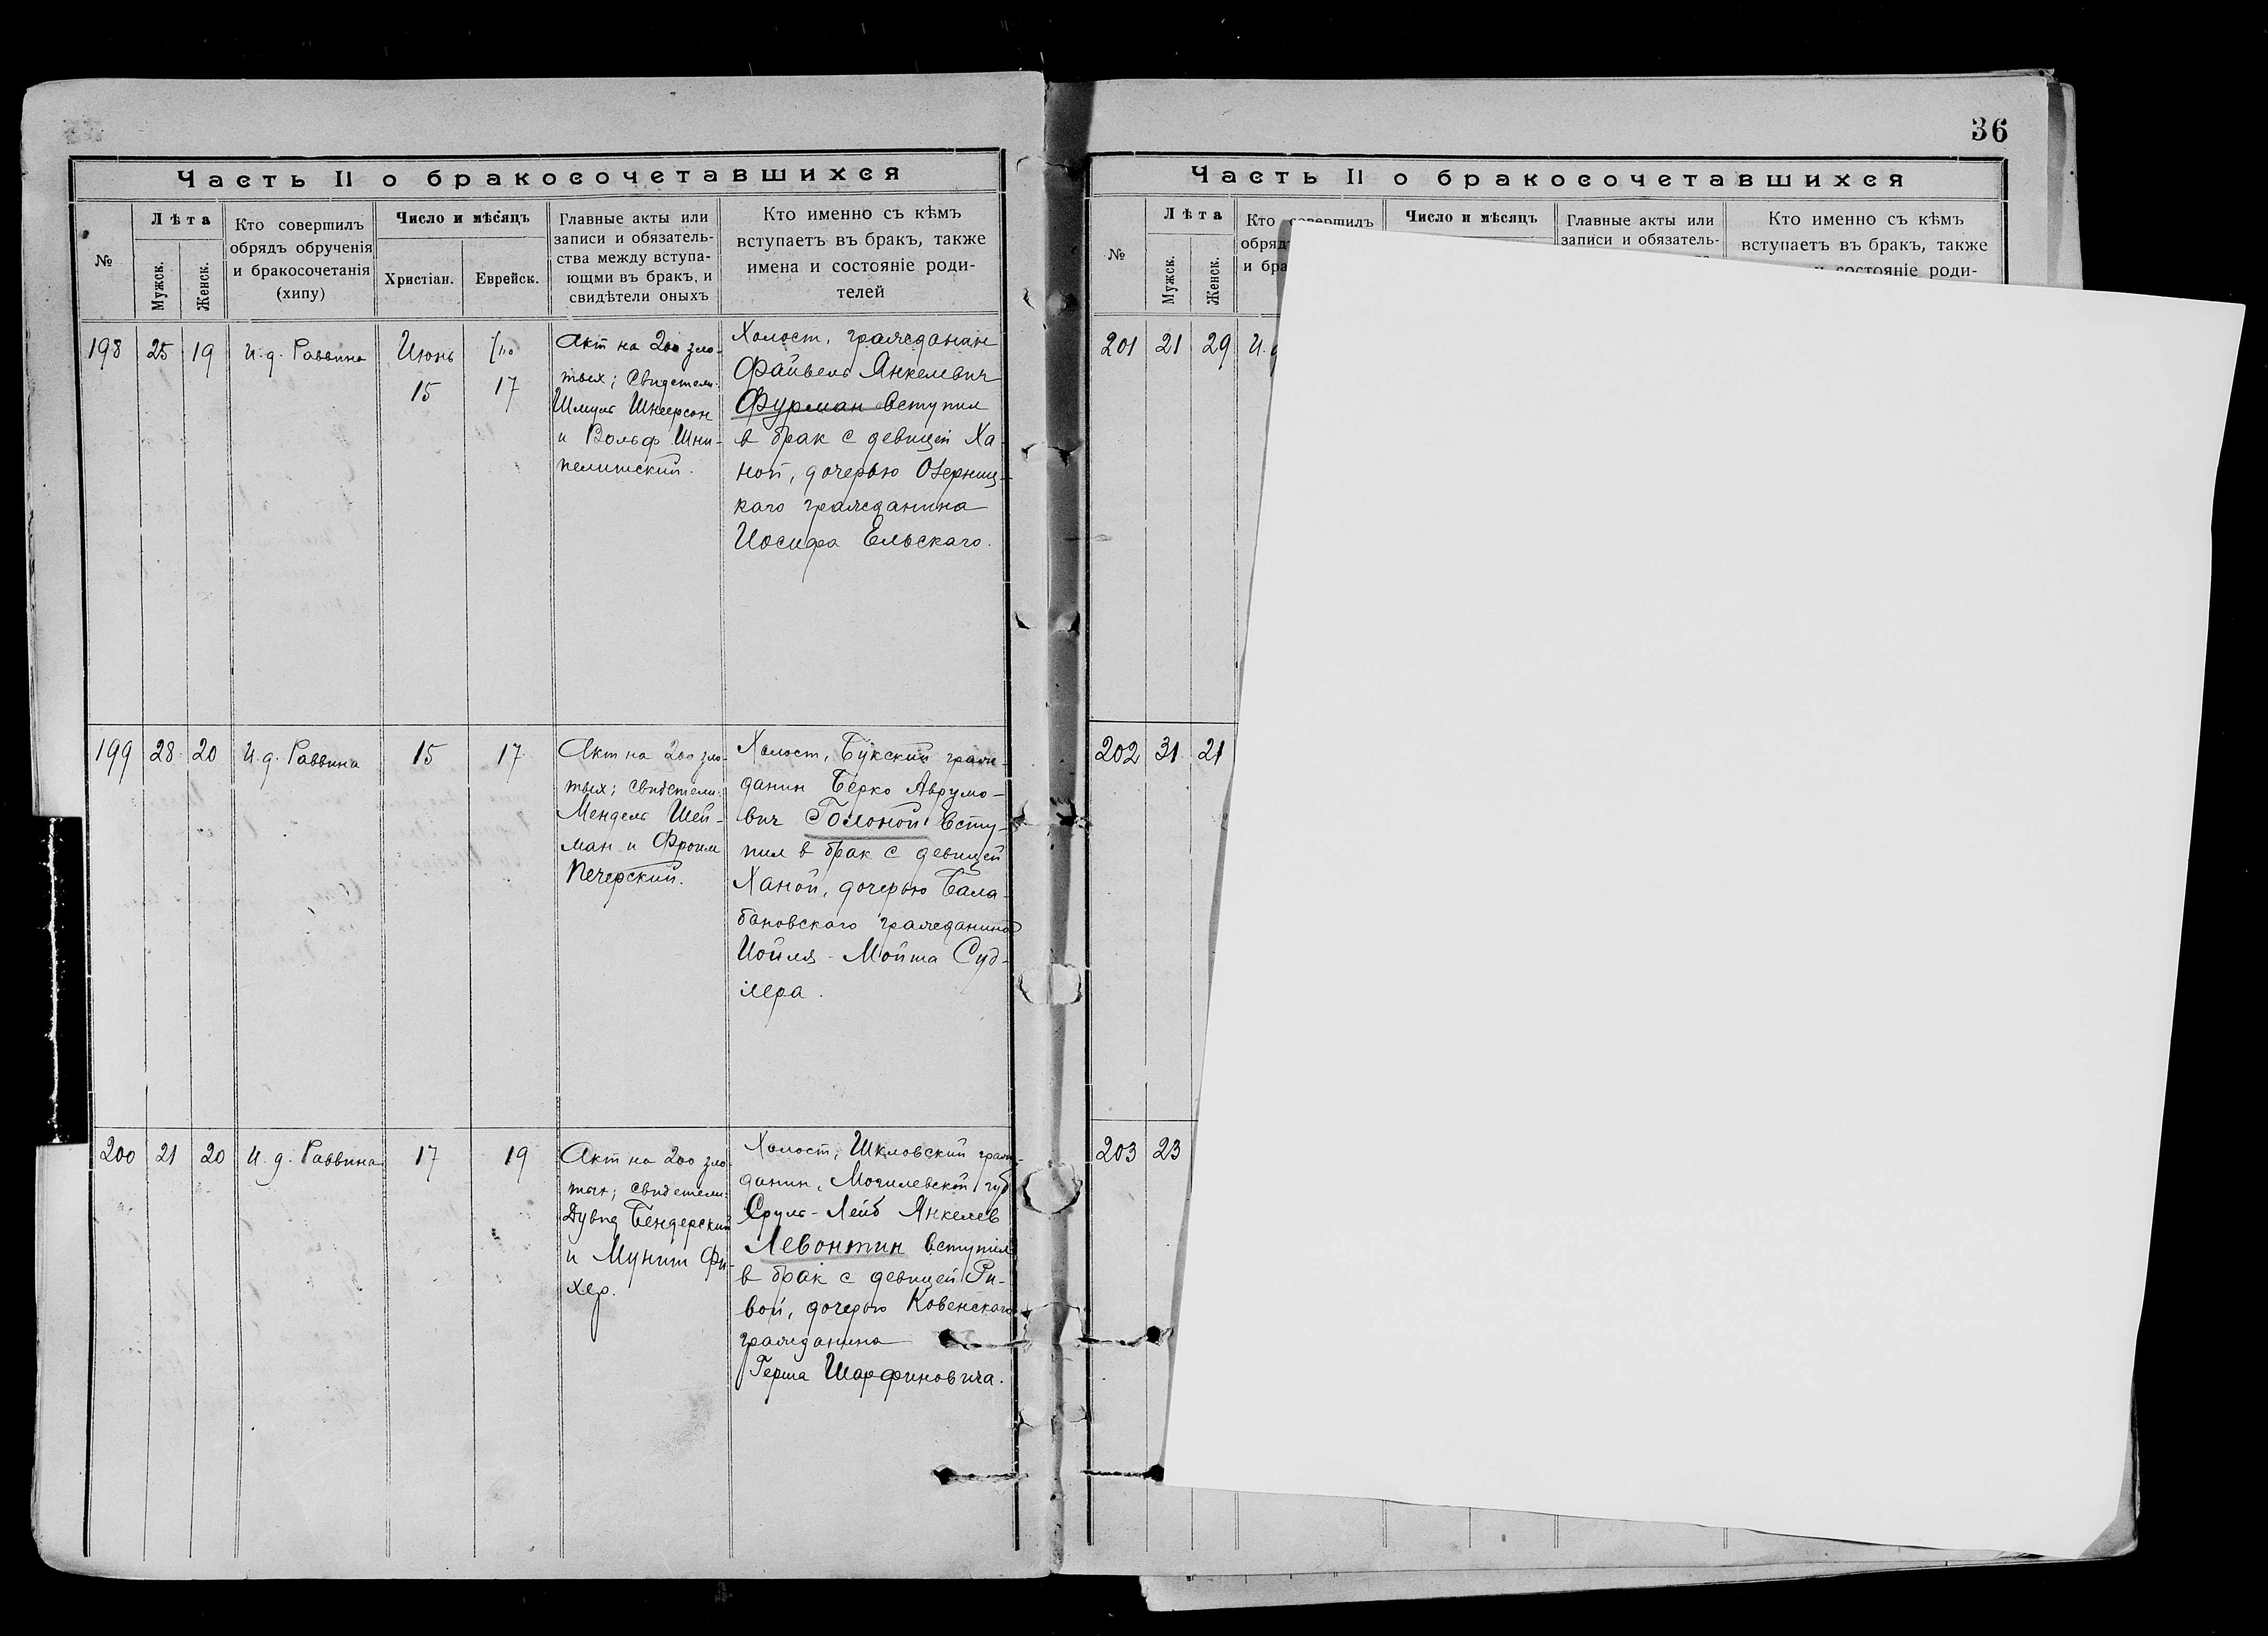 Часть II о бракосочетавшихся
№
Лѣта
Мужск.
Женск.
Кто совершилъ
обрядъ обрученія
и бракосочетанія
(хипу)
Число и мѣсяцъ
Христіан.
Еврейск.
Главные акты или
записи и обязатель-
ства между вступа-
ющми въ бракъ, и
свидѣтели оныхъ
Кто именно съ кѣмъ
вступаетъ въ бракъ, также
имена и состояніе роди-
телей
198
25
19
И.д. Раввина
Июнь
15
17
Акт на 200 зло-
тых; Свидетели:
Шмуль Шнеерсон
и Вольф Шни-
пелишский.
Холост, гражданин
Файвель Янкелевич
Фурман вступил
в брак с девицей Ха-
ной, дочерью Озерниц-
каго гражданина
Иосифа Ельскаго.
199
28
20
И.д. Раввина
15
17
Акт на 200 зло-
тых; свидетели:
Мендель Шей-
ман и Фроим
Печерский.
Холост, Букский граж-
данин Берко Аврумо-
вич Голоной всту-
пил в брак с девицей
Ханой, дочерью Бала-
бановскаго гражданина
Иойля-Мойша Суд-
лера.
200
21
20
И.д. Раввина
17
19
Акт на 200 зло-
тых; свидетели:
Дувид Бендерский
и Муниш Фи-
хер.
Холост, Шкловский граж-
данин, Могилевской губ
Сруль-Лейб Янкелев
Левонтин вступил
в брак с девицей Ри-
вой, дочерью Ковенскаго
гражданина
Герша Шарфиновича.
36
Часть II о бракосочетавшихся
№
Лѣта
Мужск.
Женск.
Кто совершилъ
обряд
и бра
Число и мѣсяцъ
Главные акты или
записи и обязатель-
Кто именно съ кѣмъ
вступаетъ въ бракъ, также
состояніе роди-
201
21
29
И.
202
31
21
203
23